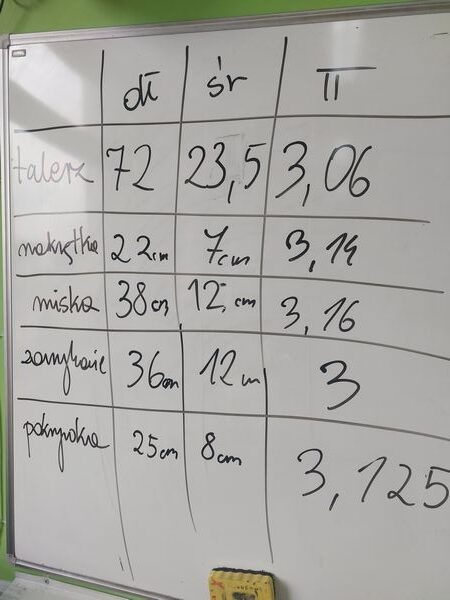 dł śr π
talerz 72 23,5 3,06
nakrętka 22cm 7cm 3,14
miska 38cm 12, cm 3,16
zamykanie 36cm 12cm 3
pokrywka 25cm 8cm 3,125